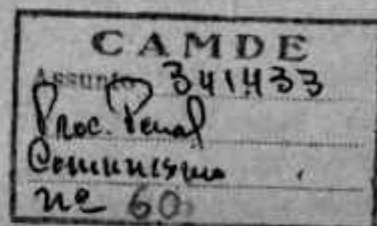 CAMDE
Assunto 341433
Proc. Penal
Comunismo
nº 60